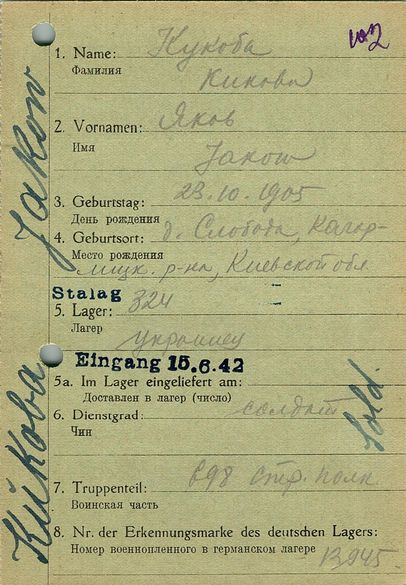 1. Name: Кукоба
Фамилия
Кикова
2. Vornamen: Яков
Имя
Jakow
3. Geburtstag: 23.10.1905
День рождения
4. Geburtsort: д. Слобода, Кагар-
Место рождения
лицк. р-на, Киевской обл
Stalag
5. Lager: 324
Лагер
украинец
Eingang 15.6.42
5a. Im Lager eingeliefert am:
Доставлен в лагер (число)
6. Dienstgrad: солдат
Чин
Sold.
698 стр. полк
7. Truppenteil:
Воинская часть
8. Nr. der Erkennungsmarke des deutschen Lagers:
Номер военнопленного в германском лагере
Jakow